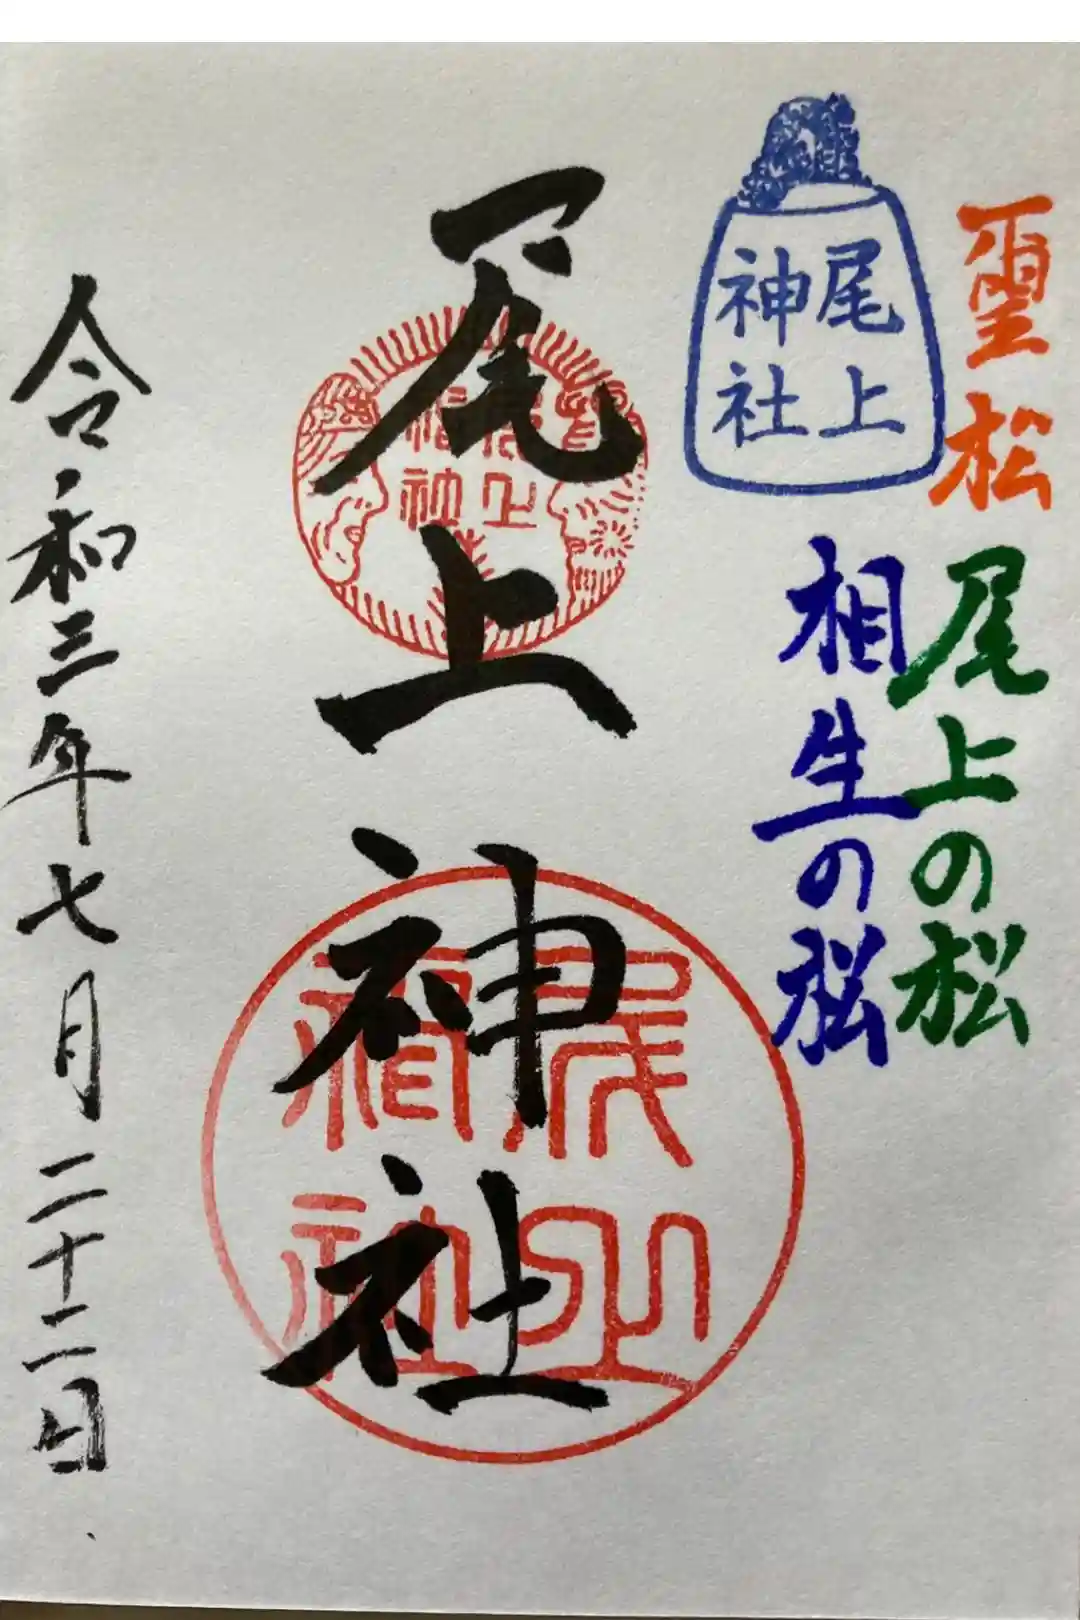 霊松
尾上の松
相生の松
尾上
神社
尾上神社
尾上
神社
令和三年七月二十二日